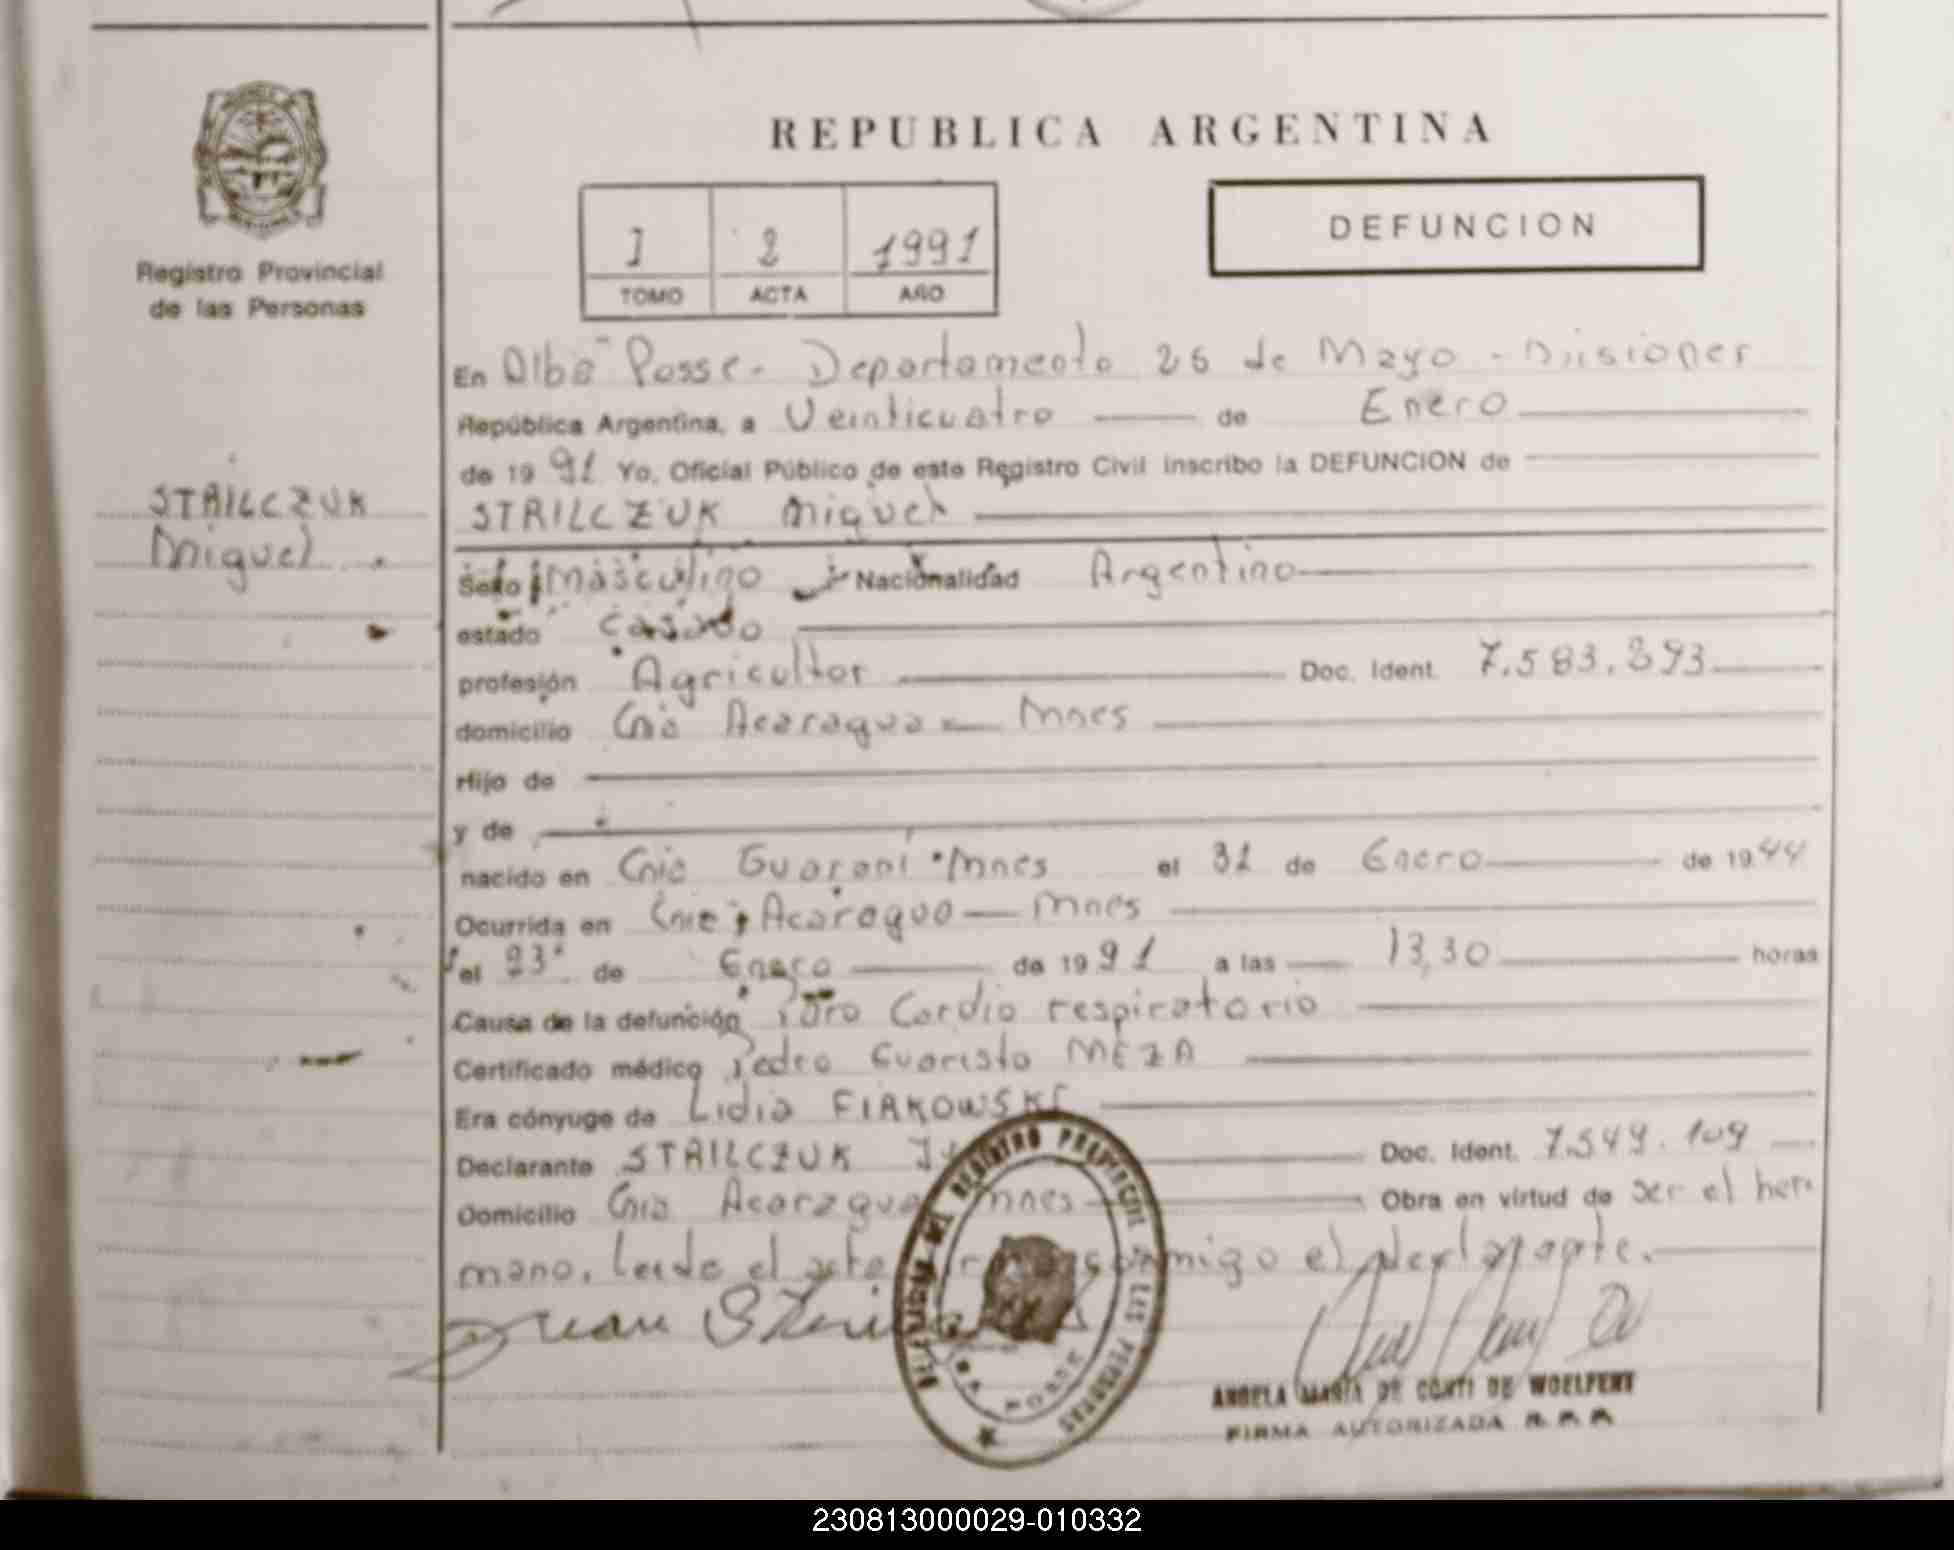 REPUBLICA ARGENTINA
DEFUNCION
1 2 1991
TOMO ACTA AÑO
Registro Provincial
de las Personas
STRILCZUK
Miguel
En Alba Posse - Departamento 25 de Mayo - Misiones
República Argentina, a Veinticuatro de Enero
de 1991 Yo, Oficial Público de este Registro Civil inscribo la DEFUNCION de
STRILCZUK Miguel
Sexo Masculino Nacionalidad Argentino
estado Casado
profesión Agricultor Doc. Ident. 7.583.293
domicilio Cnia Acaragua - Mnes
Hijo de
y de
nacido en Cnia Guaraní - Mnes el 31 de Enero de 1944
Ocurrida en Cnia Acaragua - Mnes
el 23 de Enero de 1991 a las 13,30 horas
Causa de la defunción Paro Cardio respiratorio
Certificado médico Pedro Evaristo MEZA
Era cónyuge de Lidia FIAKOWSKI
Declarante STRILCZUK Doc. Ident. 7.549.109
Domicilio Cnia Acaragua Mnes Obra en virtud de ser el her
mano. Leída el acta conmigo el declarante.
Juan
ANGELA MARIA DE CONTI DE WOELFERT
FIRMA AUTORIZADA R. P. P.
DEL REGISTRO PROVINCIAL DE LAS PERSONAS
ALBA POSSE
230813000029-010332